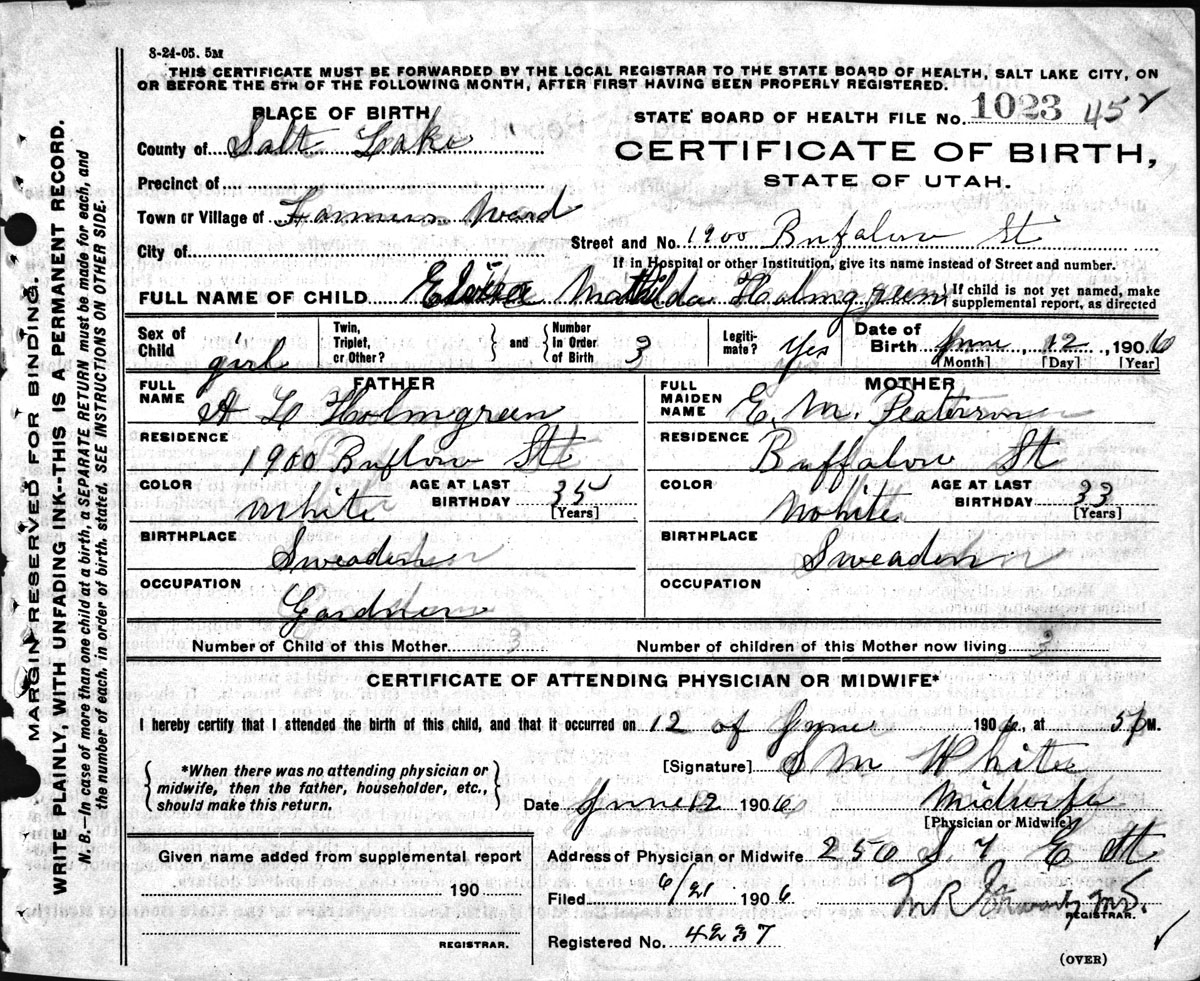 8-24-05. 5M
THIS CERTIFICATE MUST BE FORWARDED BY THE LOCAL REGISTRAR TO THE STATE BOARD OF HEALTH, SALT LAKE CITY, ON
OR BEFORE THE 5TH OF THE FOLLOWING MONTH, AFTER FIRST HAVING BEEN PROPERLY REGISTERED.
PLACE OF BIRTH
STATE BOARD OF HEALTH FILE No. 1023 452
County of Salt Lake
CERTIFICATE OF BIRTH,
STATE OF UTAH.
Precinct of
Town or Village of Farmers Ward
Street and No. 1900 Bufalow St
City of
If in Hospital or other Institution, give its name instead of Street and number.
FULL NAME OF CHILD Mathilda Holmgreen
If child is not yet named, make
supplemental report, as directed
Sex of Child girl
Twin, Triplet, or Other?
and
Number In Order of Birth 3
Legiti-mate? Yes
Date of Birth June, 12, 1906
[Month] [Day] [Year]
FATHER
FULL NAME A L Holmgreen
RESIDENCE 1900 Buflow St
COLOR White
AGE AT LAST BIRTHDAY 35
[Years]
BIRTHPLACE Sweaden
OCCUPATION Gardner
MOTHER
FULL MAIDEN NAME E. M. Peaterson
RESIDENCE Buffalow St
COLOR White
AGE AT LAST BIRTHDAY 33
[Years]
BIRTHPLACE Sweaden
OCCUPATION
Number of Child of this Mother 3
Number of children of this Mother now living 3
CERTIFICATE OF ATTENDING PHYSICIAN OR MIDWIFE*
I hereby certify that I attended the birth of this child, and that it occurred on 12 of June 1906, at 5 P M.
*When there was no attending physician or
midwife, then the father, householder, etc.,
should make this return.
[Signature] S M White
Date June 12 1906 Midwife
[Physician or Midwife]
Given name added from supplemental report
190
REGISTRAR.
Address of Physician or Midwife 256 S. 7 E St
Filed 6/21 1906
REGISTRAR.
Registered No. 4237
(OVER)
MARGIN RESERVED FOR BINDING.
WRITE PLAINLY, WITH UNFADING INK--THIS IS A PERMANENT RECORD.
N. B.--In case of more than one child at a birth, a SEPARATE RETURN must be made for each, and
the number of each, in order of birth, stated. SEE INSTRUCTIONS ON OTHER SIDE.